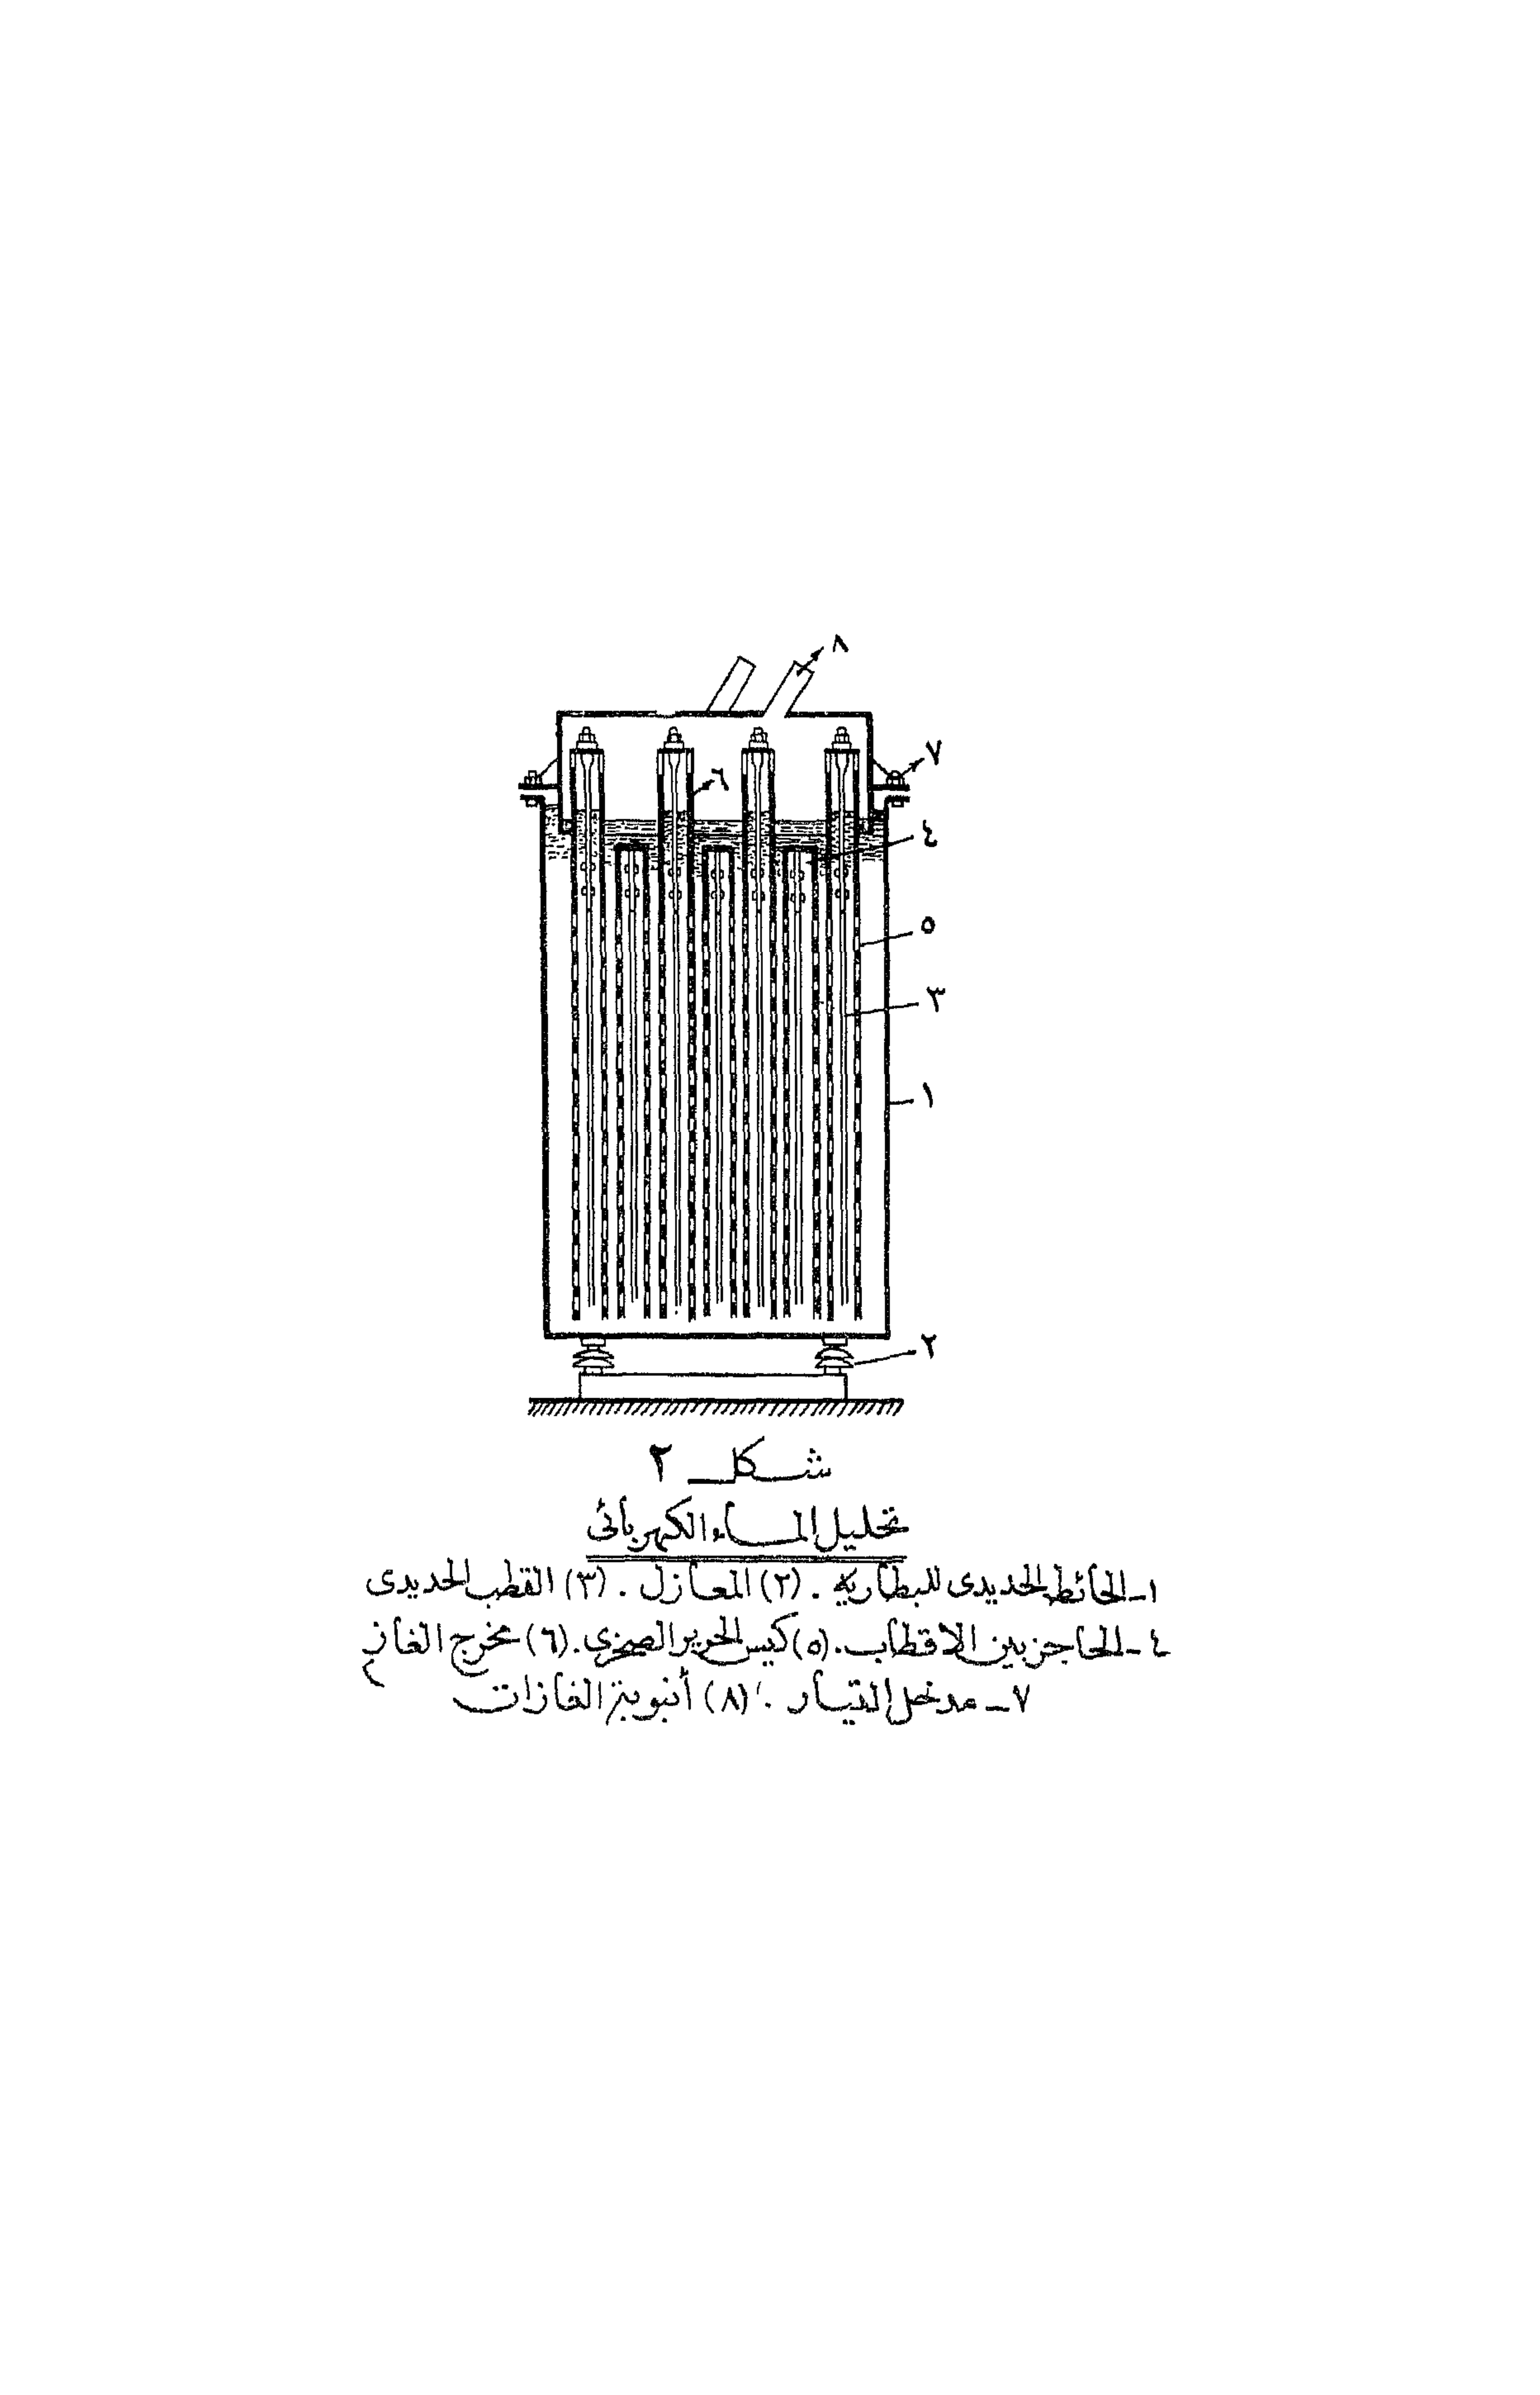 ٨
٧
٦
٤
٥
٣
١
٢
شكل ٢
تحليل الماء الكهربائى
١ـ الحائط الحديدى للبطارية . (٢) المعازل . (٣) القطب الحديدى
٤ـ الحاجز بين الاقطاب . (٥) كيس الحرير الصخرى . (٦) مخرج الغاز
٧ـ مدخل التيار . (٨) أنبوبة الغازات